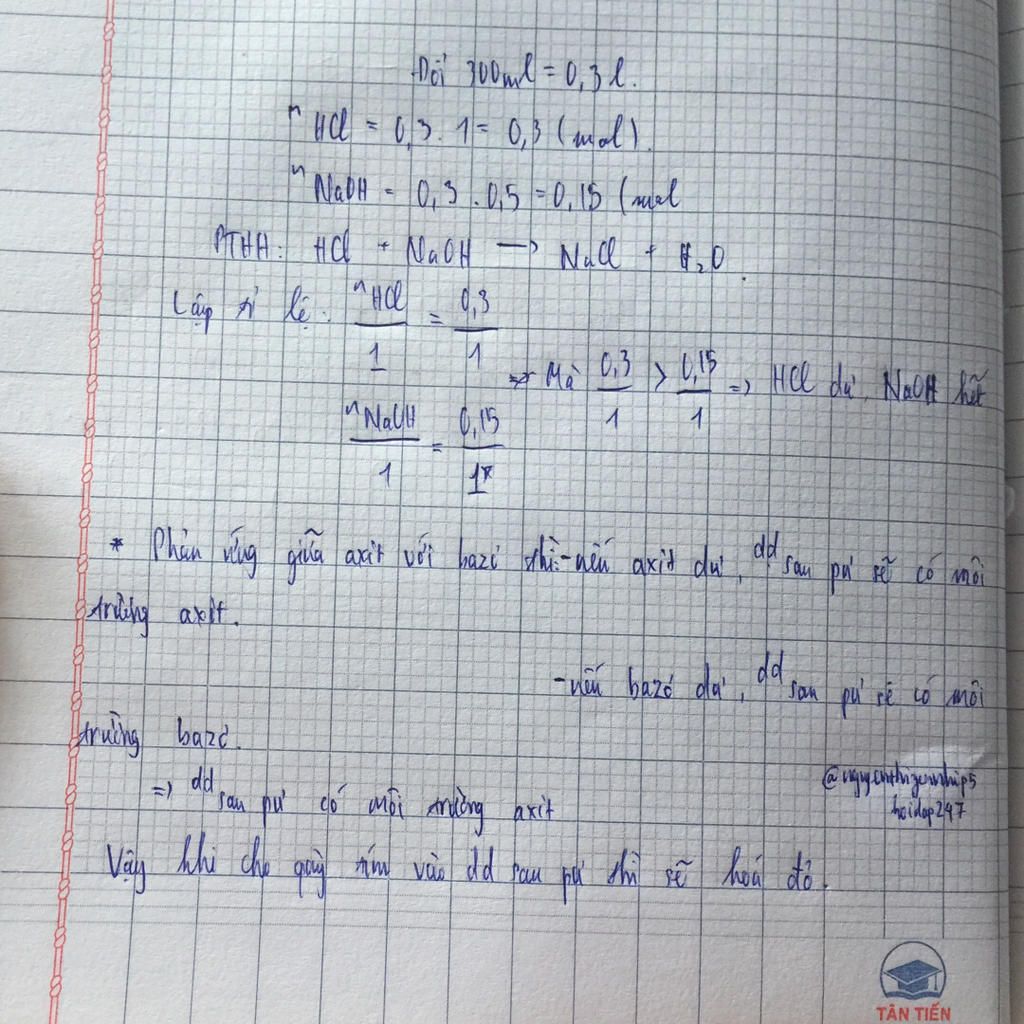 Đổi 300ml = 0,3 l.
nHCl = 0,3 . 1 = 0,3 (mol).
nNaOH = 0,3 . 0,5 = 0,15 (mol
PTHH: HCl + NaOH → NaCl + H₂O.
Lập tỉ lệ: nHCl/1 = 0,3/1
=> Mà 0,3/1 > 0,15/1 => HCl dư, NaOH hết
nNaOH/1 = 0,15/1
* Phản ứng giữa axit với bazơ thì: - nếu axit dư, dd sau pư sẽ có môi
trường axit.
- nếu bazơ dư, dd sau pư sẽ có môi
trường bazơ.
=> dd sau pư có môi trường axit
Vậy khi cho quỳ tím vào dd sau pư thì sẽ hoá đỏ.
hoidap247
TÂN TIẾN